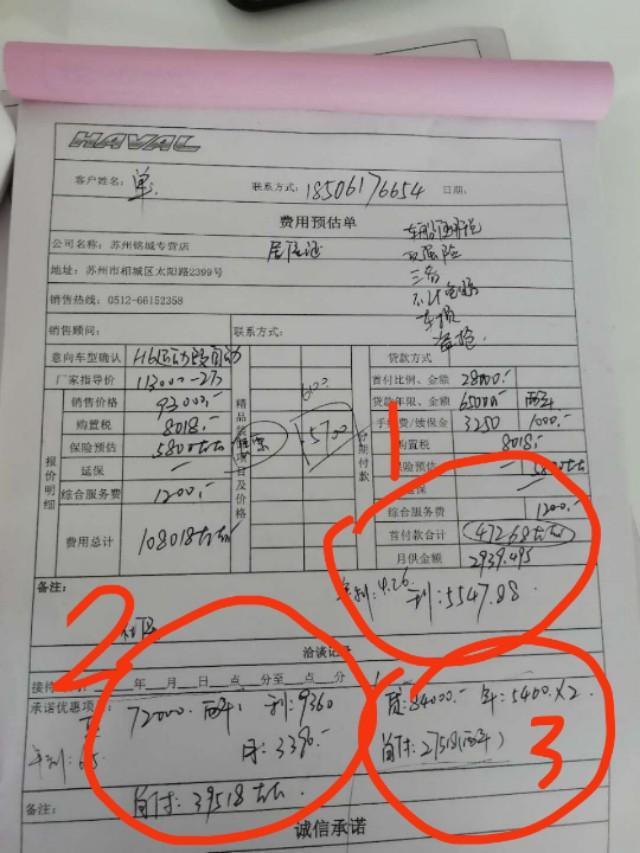 HAVAL
客户姓名：单 联系方式：18506176654 日期：
费用预估单
公司名称：苏州铭城专营店 居住证
地址：苏州市相城区太阳路2399号
车船使用税
交强险
三者
不计免赔
车损
销售热线：0512-66152358
销售顾问： 联系方式：
意向车型确认 H6运动版自动 贷款方式
厂家指导价 113000-2万 首付比例、金额 28000.-
报价明细
销售价格 93000.- 精品装饰项目及价格 6100 分期付款 贷款年限、金额 65000.- 两年
购置税 8018.- 5700 手续费/续保金 3250 1000.-
保险预估 5800左右 购置税 8018.-
延保 — 保险预估 5800左右
综合服务费 1200.- 延保 —
综合服务费 1200.-
费用总计 108018左右 首付款合计 47268左右
月供金额 2939.495
备注： 年利：4.26 利：5547.88
1
2
洽谈记录
接待 年 月 日 点 分至 点 分
承诺优惠项 72000.- 两年： 利：9360
月：3390.-
年利：6.5
首付：39518左右.
贷：84000.- 年：5400.×2.
首付：27518(两年)
3
备注：
诚信承诺